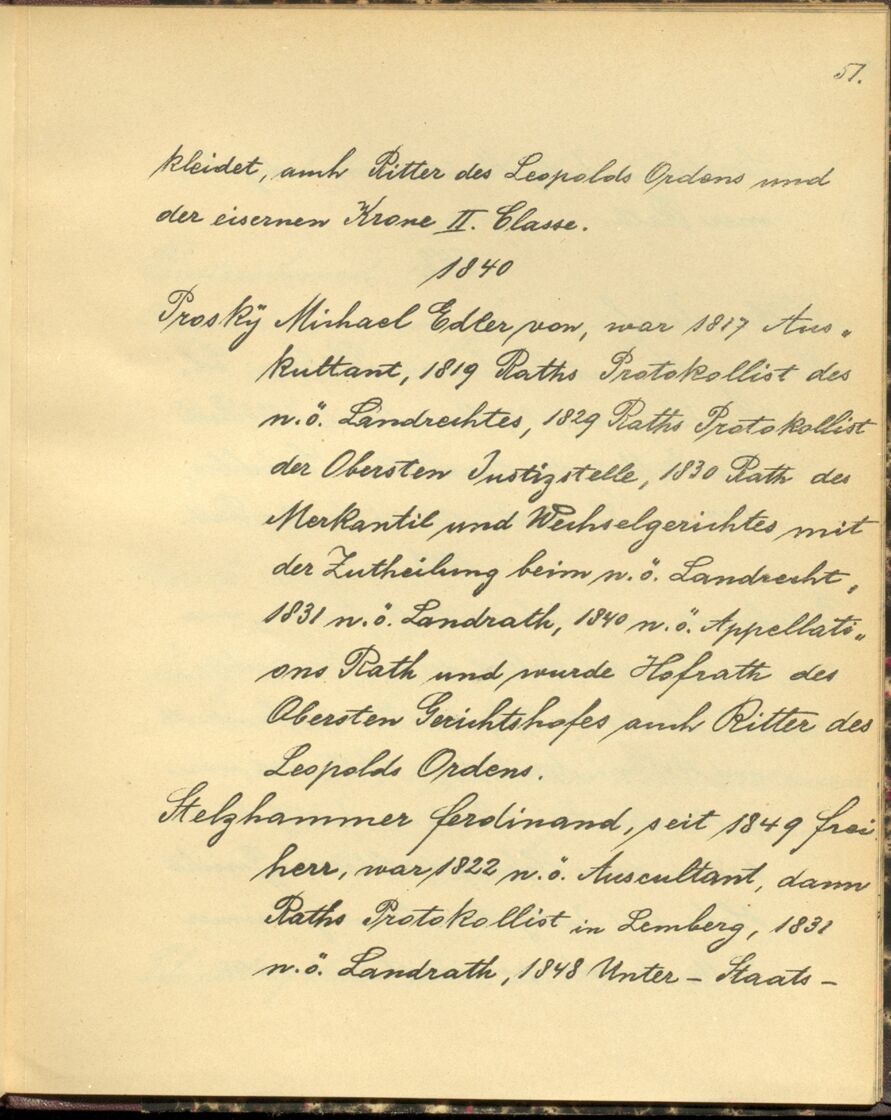 51.
kleidet, auch Ritter des Leopolds Ordens und
der eisernen Krone II. Classe.
1840
Proskÿ Michael Edler von, war 1817 Aus„
kultant, 1819 Raths Protokollist des
n.ö. Landrechtes, 1829 Raths Protokollist
der Obersten Justizstelle, 1830 Rath des
Merkantil und Wechselgerichtes mit
der Zutheilung beim n.ö. Landrecht,
1831 n.ö. Landrath, 1840 n.ö. Appellati„
ons Rath und wurde Hofrath des
Obersten Gerichtshofes auch Ritter des
Leopolds Ordens.
Stelzhammer Ferdinand, seit 1849 Frei
herr, war 1822 n.ö. Auscultant, dann
Raths Protokollist in Lemberg, 1831
n.ö. Landrath, 1848 Unter – Staats –